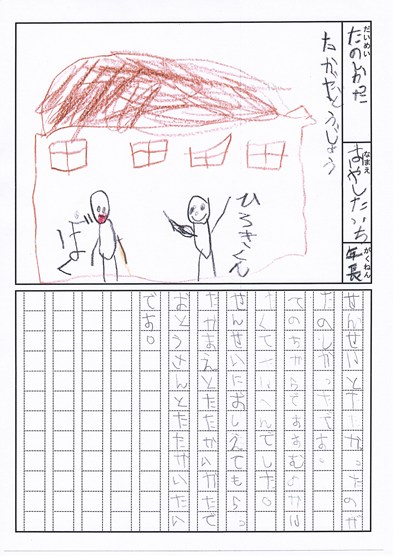 だいめい
たのしかった
たかやどうじょう
なまえ
がくねん
年長
ひろきくん
ぼく
せんせいとたたかったのが
たのしかったです。
てのちからですすむのは
でした。
せんせいにおしえてもらっ
たかまえとたたかいかたで
おとうさんとたたかいたい
です。